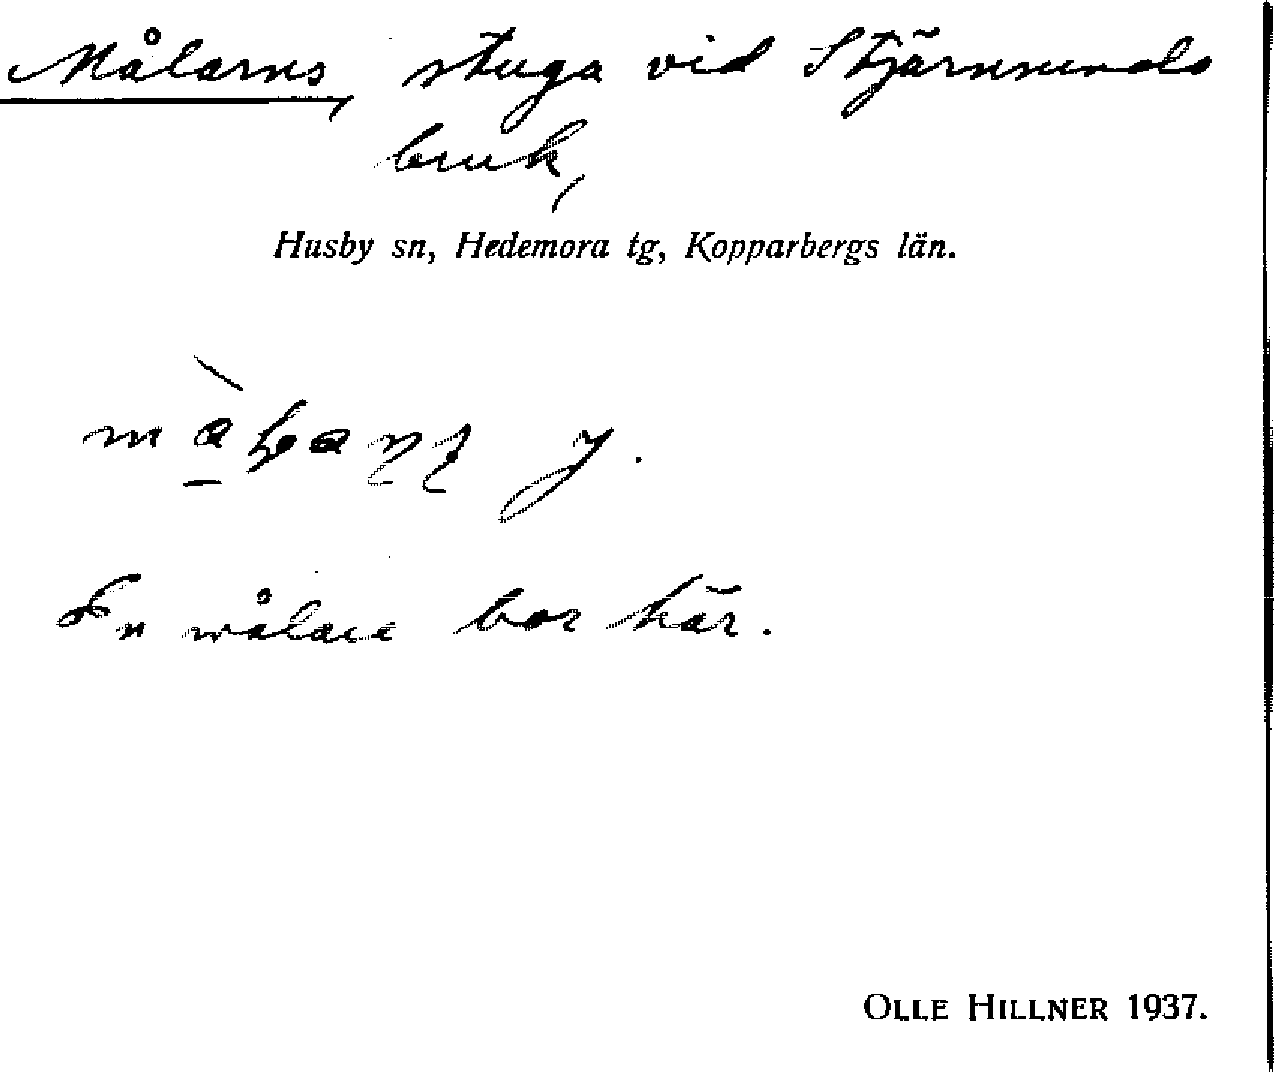 Målarns, stuga vid Stjärnsunds
bruk,
Husby sn, Hedemora tg, Kopparbergs län.
y.
En målare bor här.
OLLE HILLNER 1937.